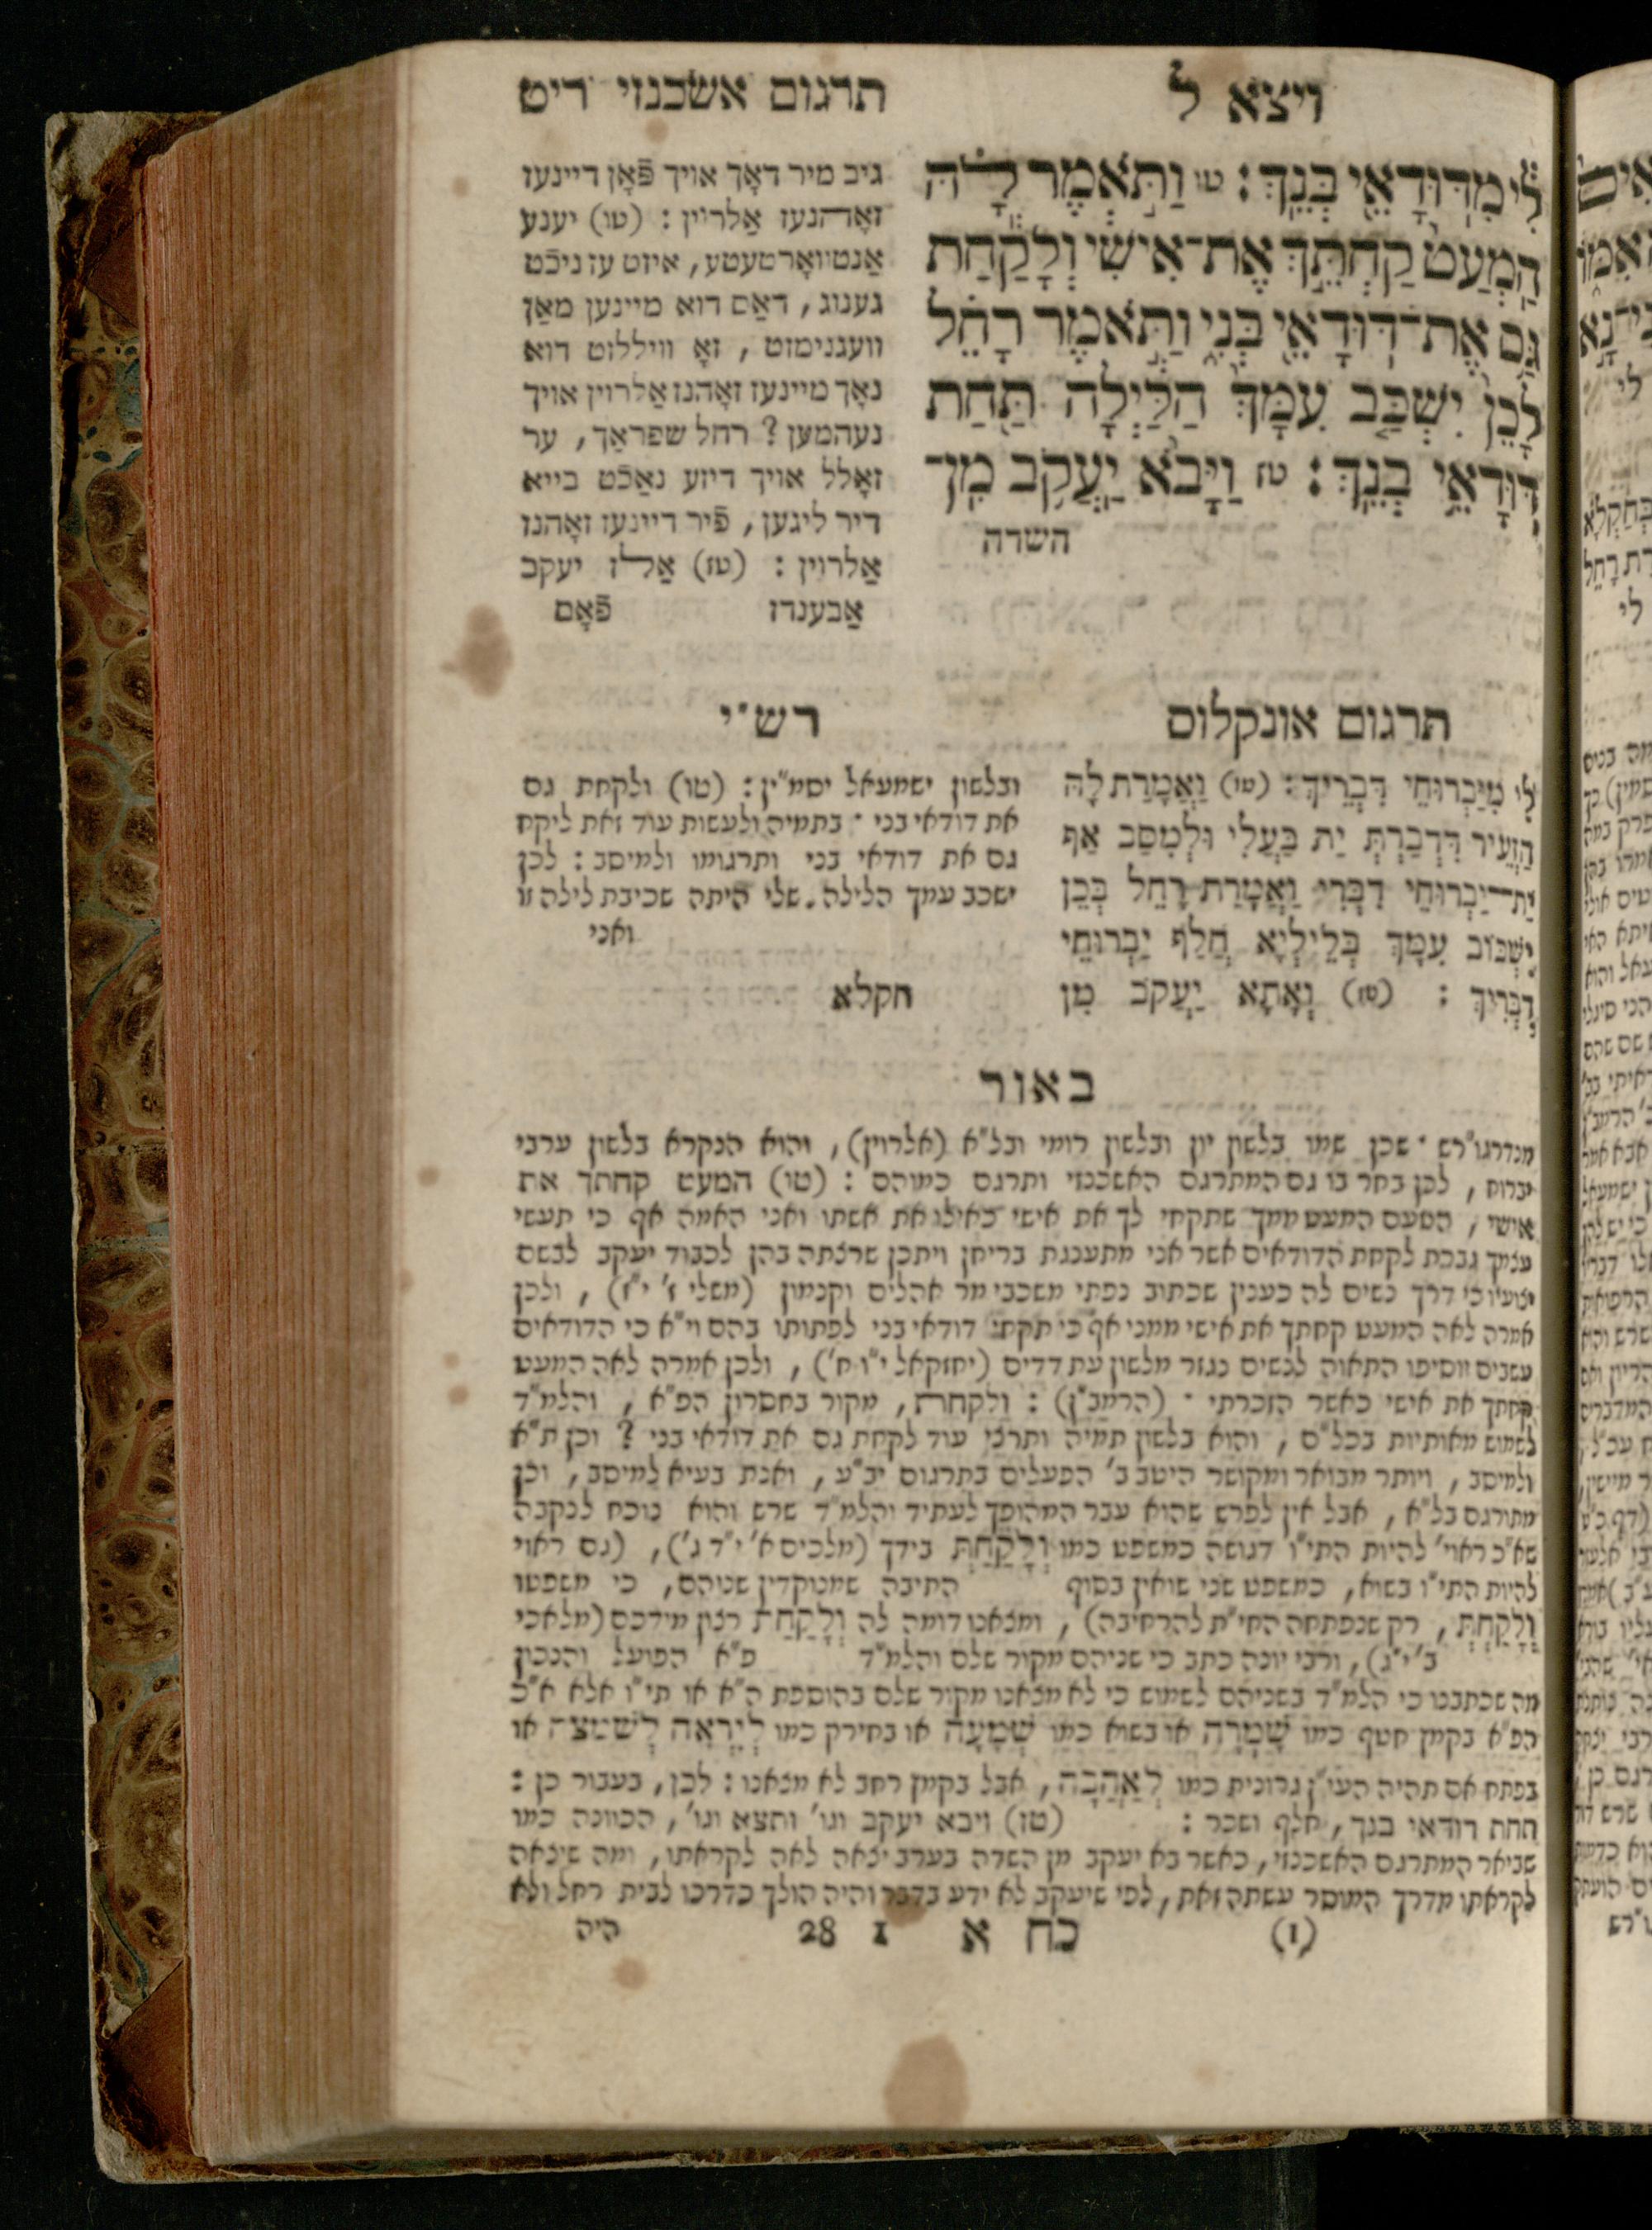 ויצא ל
תרגום אשכנזי ריט
לִי מִדּוּדָאֵי בְּנֵךְ : טו וַתֹּאמֶר לָהּ
הַמְעַט קַחְתֵּךְ אֶת־אִישִׁי וְלָקַחַת
גַּם אֶת־דּוּדָאֵי בְּנִי וַתֹּאמֶר רָחֵל
לָכֵן יִשְׁכַּב עִמָּךְ הַלַּיְלָה תַּחַת
דּוּדָאֵי בְנֵךְ : טז וַיָּבֹא יַעֲקֹב מִן־
השדה
גיב מיר דאָך אויך פֿאָן דיינעז
זאָהנעז אַלרוין : (טו) יענע
אַנטוואָרטעטע, איזט עז ניכֿט
גענוג, דאַס דוא מיינען מאַן
וועגנימזט, זאָ וויללזט דוא
נאָך מיינעז זאָהנז אַלרוין אויך
נעהמען ? רחל שפראַך, ער
זאָלל אויך דיזע נאַכֿט בייא
דיר ליגען, פֿיר דיינעז זאָהנז
אַלרוין : (טז) אַלז יעקב
אַבענדז פֿאָם
תרגום אונקלוס
לִי מִיַּבְרוּחֵי דִבְרִיךְ : (טו) וַאֲמָרַת לָהּ
הַזְעֵיר דִּדְבַרְתְּ יַת בַּעֲלִי וּלְמִסַּב אַף
יַת־יַבְרוּחֵי דִבְרִי וַאֲמָרַת רָחֵל בְּכֵן
יִשְׁכּוּב עִמָּךְ בְּלֵילְיָא חֲלַף יַבְרוּחֵי
דִבְרִיךְ : (טז) וְאָתָא יַעֲקֹב מִן
חקלא
רש״י
ובלשון ישמעאל יסמ״ין : (טו) ולקחת גם
את דודאי בני · בתמיה ולעשות עוד זאת ליקח
גם את דודאי בני ותרגומו ולמיסב : לכן
ישכב עמך הלילה . שלי היתה שכיבת לילה זו
ואני
באור
מנדרגו״רש · שכן שמו בלשון יון ובלשון רומי ובל״א (אלרוין), והוא הנקרא בלשון ערבי
יברוח, לכן בחר בו גם המתרגם האשכנזי ותרגם כמוהם : (טו) המעט קחתך את
אישי, הטעם המעט ממך שתקחי לך את אישי כאילו את אשתו ואני האמה אף כי תעשי
עצמך גברת לקחת הדודאים אשר אני מתענגת בריחן ויתכן שרצתה בהן לכבוד יעקב לבשם
יצועיו כי דרך נשים לה כענין שכתוב נפתי משכבי מר אהלים וקנמון (משלי ז׳ י״ז), ולכן
אמרה לאה המעט קחתך את אישי ממני אף כי תקחי דודאי בני לפתותו בהם וי״א כי הדודאים
עשבים יוסיפו התאוה לנשים נגזר מלשון עת דדים (יחזקאל י״ו ח׳), ולכן אמרה לאה המעט
קחתך את אישי כאשר הזכרתי · (הרמב״ן) : ולקחת, מקור בחסרון הפ״א, והלמ״ד
לשמוש מאותיות בכל״ם, והוא בלשון תמיה ותרצי עוד לקחת גם את דודאי בני ? וכן ת״א
ולמיסב, ויותר מבואר ומקושר היטב ב׳ הפעלים בתרגום יב״ע, ואנת בעיא למיסב, וכן
מתורגם בל״א, אבל אין לפרש שהוא עבר המהופך לעתיד והלמ״ד שרש והוא נוכח לנקבה
שא״כ ראוי׳ להיות התי״ו דגושה כמשפט כמו וְלָקַחַתְּ בידך (מלכים א׳ י״ד ג׳), (גם ראוי
להיות התי״ו בשוא, כמשפט שני שואין בסוף התיבה שמנוקדין שניהם, כי משפטו
וְלָקַחְתְּ, רק שנפתחה החי״ת להרחיבה), ומצאנו דומה לה וְלָקַחַת רצון מידכם (מלאכי
ב׳ י״ג), ורבי יונה כתב כי שניהם מקור שלם והלמ״ד פ״א הפועל והנכון
מה שכתבנו כי הלמ״ד בשניהם לשמוש כי לא מצאנו מקור שלם בהוספת ה״א או תי״ו אלא א״כ
הפ״א בקמץ חטף כמו שָׁמְרָה או בשוא כמו שְׁמָעָה או בחירק כמו לְיִרְאָה לְשִׁמְצָה או
בפתח אם תהיה העי״ן גרונית כמו לְאַהֲבָה, אבל בקמץ רחב לא מצאנו : לכן, בעבור כן :
תחת דודאי בנך, חלף ושכר : (טז) ויבא יעקב וגו׳ ותצא וגו׳, הכוונה כמו
שביאר המתרגם האשכנזי, כאשר בא יעקב מן השדה בערב יצאה לאה לקראתו, ומה שיצאה
לקראתו מדרך המוסר עשתה זאת, לפי שיעקב לא ידע בדבר והיה הולך כדרכו לבית רחל ולא
(I) כח א 1 28 היה